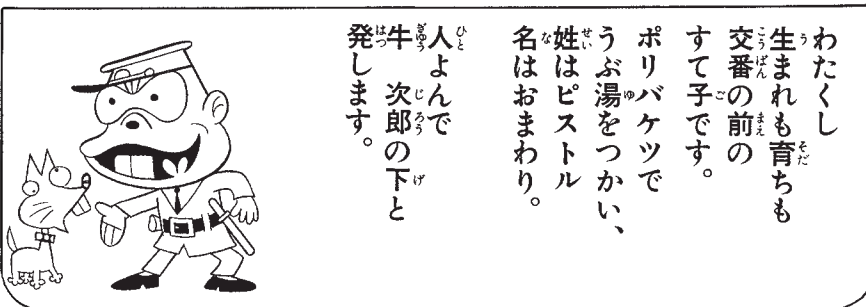 わたくし
生まれも育ちも
交番の前の
すて子です。
ポリバケツで
うぶ湯をつかい、
姓はピストル
名はおまわり。
人よんで
牛 次郎の下と
発します。